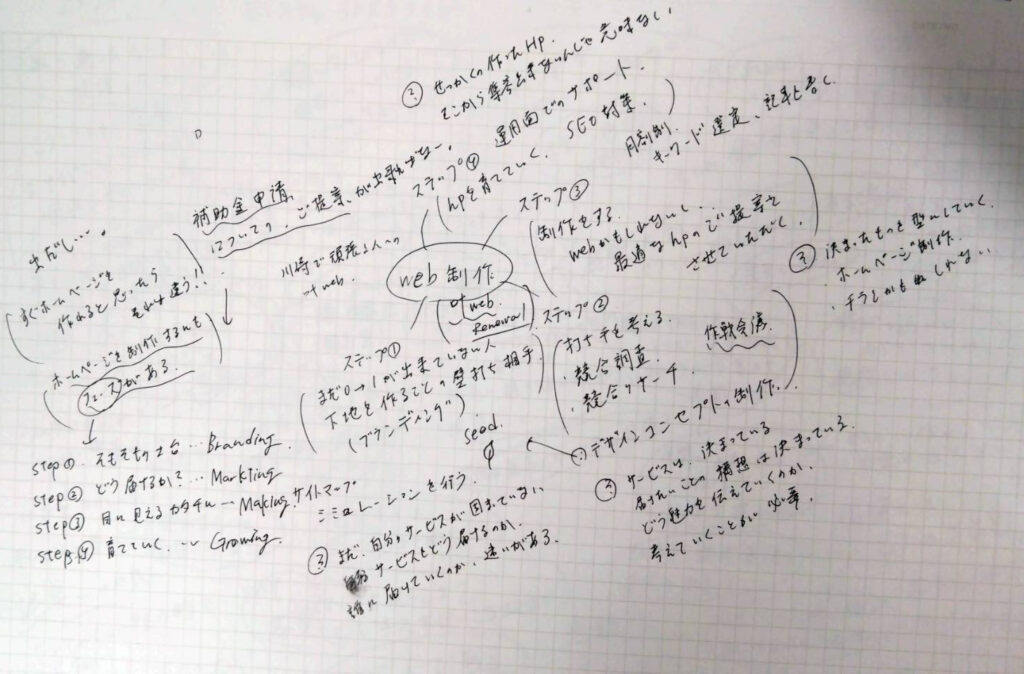 ② せっかくの作ったHp.
そこから集客出来ないんじゃ意味ない
ステップ④ 運用面でのサポート.
hpを育てていく. SEO対策.
月刻制.
キーワード選定、記事を書く
補助金申請.
についての、ご提案、が出来ればなー。
まだし…。
すぐホームページを
作れると思ったら
それは違う!!
ホームページを制作するにも
フェーズがある.
step① そもそもの土台…Branding.
step② どう届けるか?…Markting
step③ 目に見えるカタチに…Making. サイトマップ
step④ 育てていく. … Growing.
川崎で頑張る人への
web.
web制作
or web.
Renewal
ステップ③
制作をする.
webかもしれないし.
最適なhpのご提案を
させていただく
③ 決まったもっを型にしていく.
・ホームページ制作.
・チラシかもしれない
ステップ①
まだ0→1が出来ていない人
下地を作ることの壁打ち相手
(ブランディング)
seed.
シミュレーションを行う.
ステップ②
打ち手を考える.
・競合調査
・競合リサーチ
作戦会議
デザインコンセプトの制作.
② サービスは、決まっている
届けたいことの構想は決まっている.
どう魅力を伝えていくのか.
考えていくことが必要.
③ まだ、自分のサービスが固まっていない
サービスをどう届けるのか.
誰に届けていくのか、迷いがある.